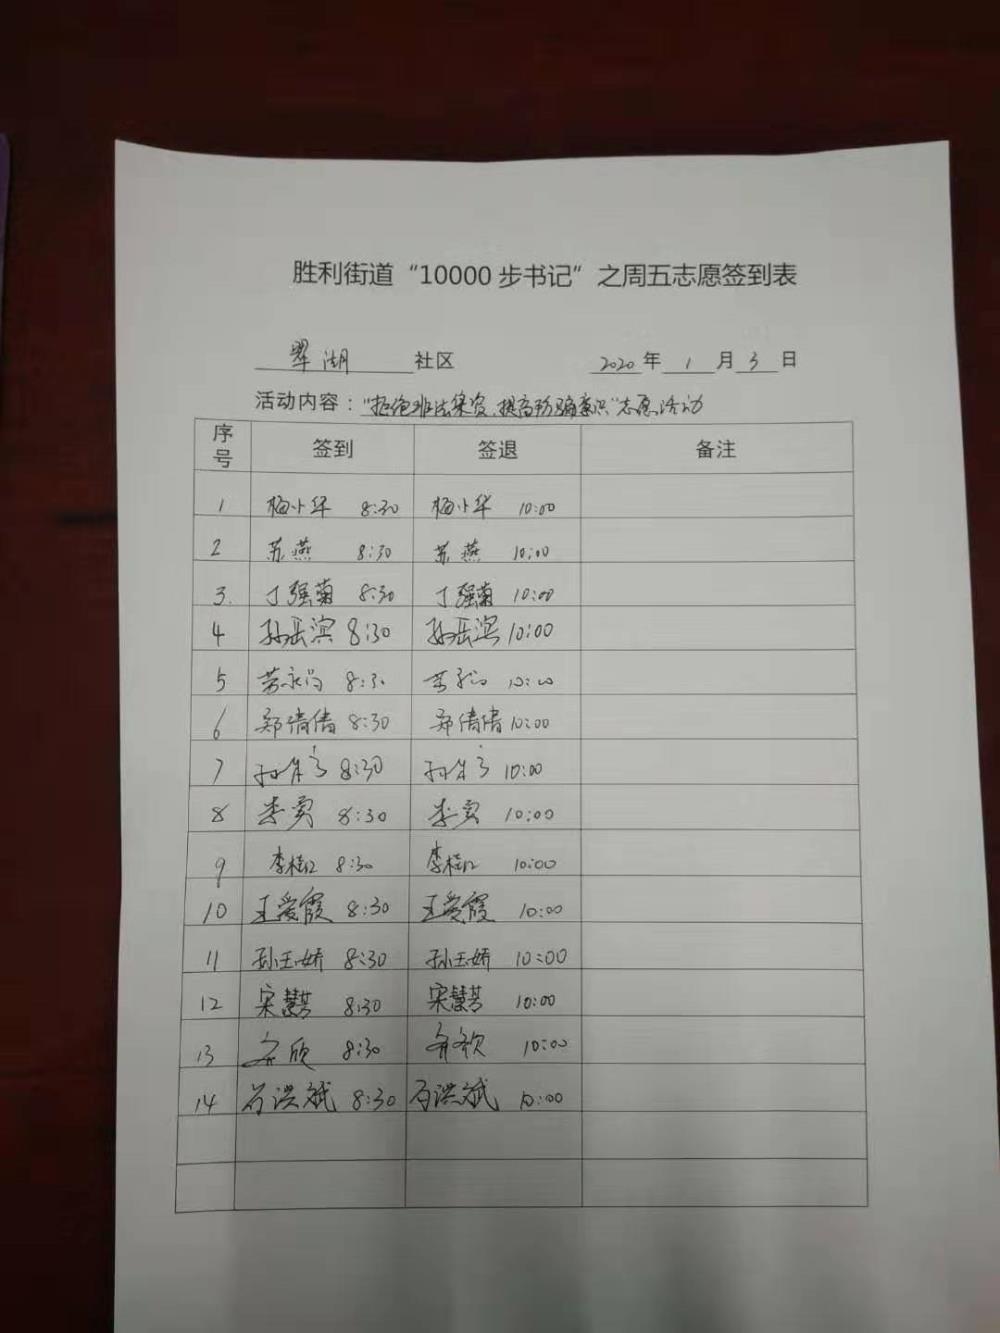 胜利街道“10000 步书记”之周五志愿签到表
翠湖 社区 2020 年 1 月 3 日
活动内容：“拒绝非法集资、提高防骗意识”志愿活动
序号 签到 签退 备注
1 杨小华 8:30 杨小华 10:00
2 苏燕 8:30 苏燕 10:00
3. 丁强菊 8:30 丁强菊 10:00
4 孙岳滨 8:30 孙岳滨 10:00
5 8:30 10:00
6 郑倩倩 8:30 郑倩倩 10:00
7 8:30 10:00
8 8:30 10:00
9 李桂江 8:30 李桂江 10:00
10 王爱霞 8:30 王爱霞 10:00
11 孙玉娇 8:30 孙玉娇 10:00
12 宋慧芳 8:30 宋慧芳 10:00
13 8:30 10:00
14 石洪斌 8:30 石洪斌 10:00